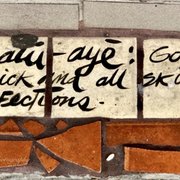 atū-ayē: Go
ick and all sk
fections.